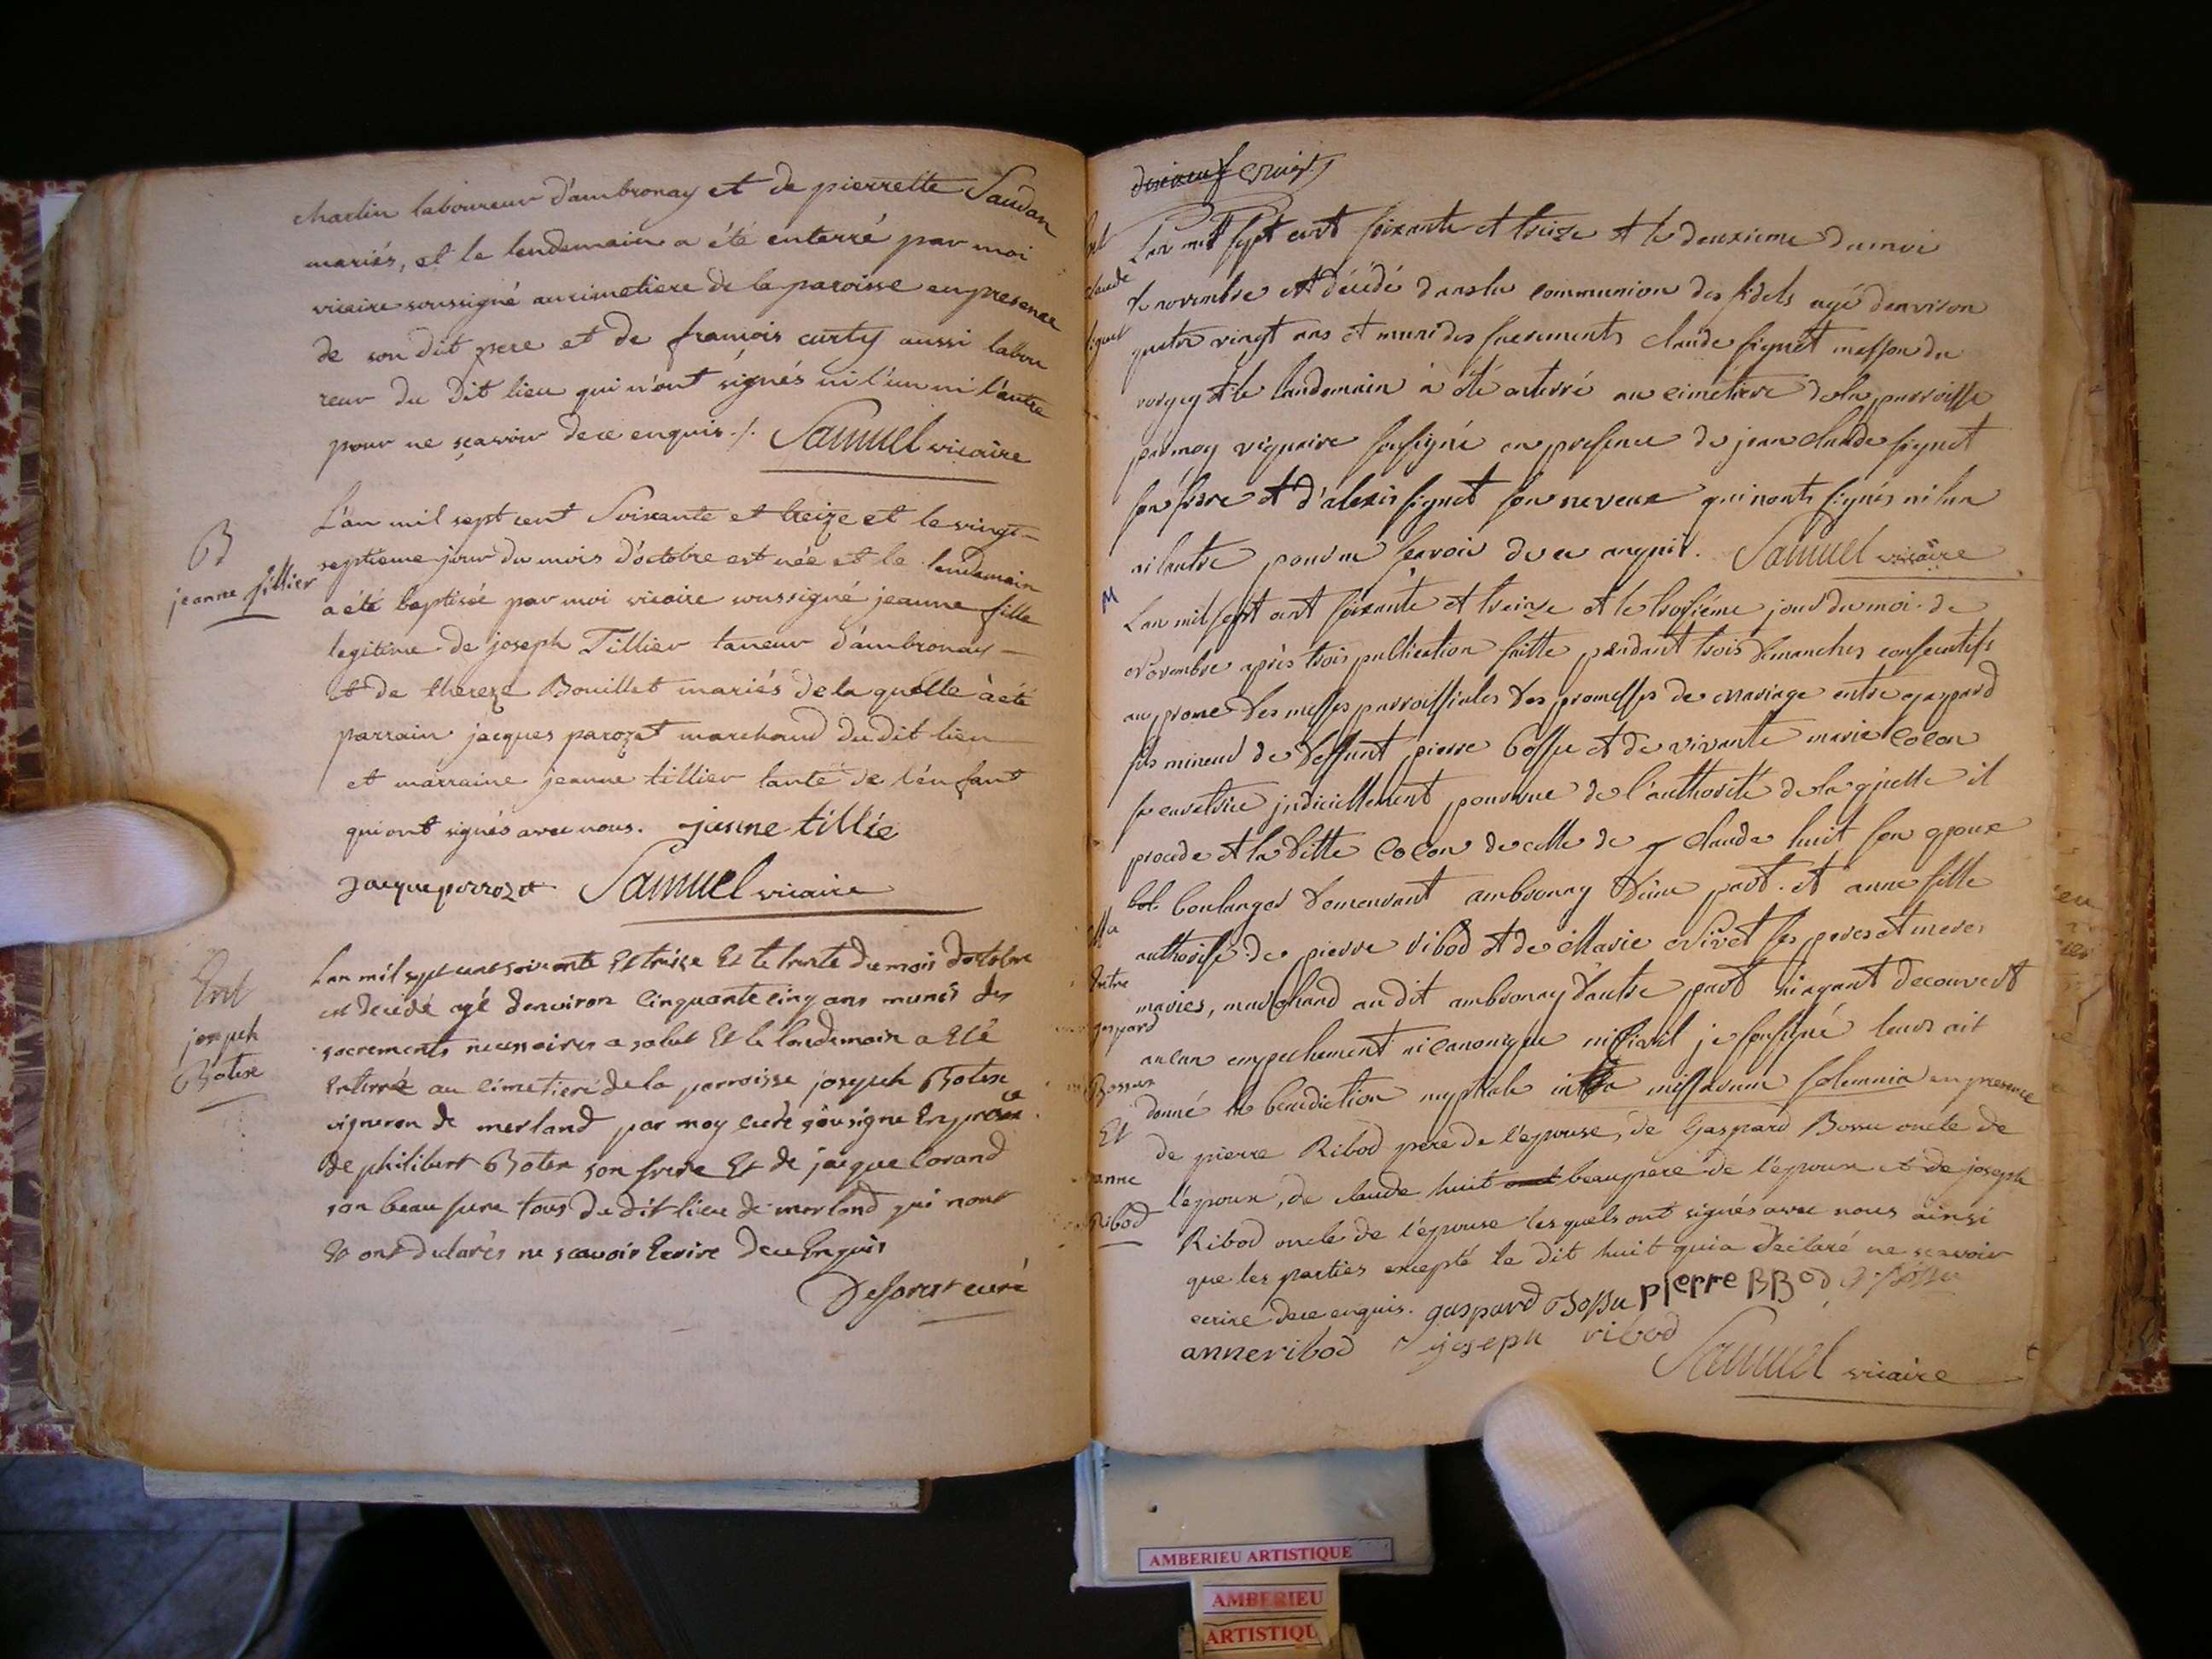 charlin laboureur d'ambronay et de pierrette Saudan
mariés, et le lendemain a été enterré par moi
vicaire soussigné au cimetiere de la paroisse en presence
de son dit pere et de françois curty aussi labou
reur du dit lieu qui n'ont signés ni l'un ni l'autre
pour ne sçavoir de ce enquis ./. Samuel vicaire
B
jeanne tillier
L'an mil sept cent Soixante et treize et le vingt-
septieme jour du mois d'octobre est née et le lendemain
a été baptisée par moi vicaire soussigné jeanne fille
legitime de joseph Tillier taneur d'ambronay
et de thereze Bouillet mariés de la quelle à été
parrain jacques parozet marchand du dit lieu
et marraine jeanne tillier tante de l'enfant
qui ont signés avec nous. jeanne tillie
Jacque perrozet Samuel vicaire
Ent
joseph
Botex
Lan mil sept cent soixante Et traize Et le trente du mois doctobre
est decedé agé denviron Cinquante cinq ans munis des
sacrements necessaires a salut Et le landemain a Eté
Enterré au Cimetiere de la parroisse joseph Botex
vigneron de merland par moy curé sousigne En prnce
de philibert Botex son frere Et de jacque Corand
son beau frere tous du dit lieu de merland qui nont
Et ont declarés ne scavoir Ecrire de ce Enquis
curé
dixneuf vingt
Lan mil sept cent soixante et treize et le deuxieme du moi
de novembre est décédé dans la communion des fidels agé denviron
quatre vingt ans et muni des sacrements claude signet masson du
et le landemain à été anterré au cimetiere de la parroisse
par moy viquaire sousigné en presence de jean claude signet
son frere et d'alexis signet son neveux qui nonts signés ni lun
ni lautre pour ne scavoir de ce anquis. Samuel vicaire
M
Lan mil sept cent soixante et treize et le troisiéme jour du moi de
Novembre après trois publication faitte pandant trois dimanches consecutifs
au prone des messes parroissiales des promesses de mariage entre gaspard
fils mineur de deffunt pierre bossu et de vivante marie Cocon
sa curatrice judiciellement pourvue de l'authorité de la quelle il
procede et la ditte Cocon de celle de claude huit son epoux
boulanger demeurant ambronay d'une part. et anne fille
authorisé de pierre ribod et de Marie Nivet ses peres et meres
mariés, marchand au dit ambronay d'autre part niayant decouvert
aucun empechement ni canonique ni civil je sousigné leurs ait
donné la benediction nuptiale intra missarum solemnia en presence
de pierre Ribod pere de l'epouse, de Gaspard Bossu oncle de
l'epoux, de claude huit beaupere de l'époux et de joseph
Ribod oncle de l'épouse les quels ont signés avec nous ainsi
que les parties excepté le dit huit qui a declaré ne scavoir
ecrire de ce enquis. gaspard Bossu pierre RiBod
anne ribod joseph ribod
Samuel vicaire
Entre
gaspard
Bossu
Et
anne
Ribod
AMBERIEU ARTISTIQUE
AMBERIEU
ARTISTIQU